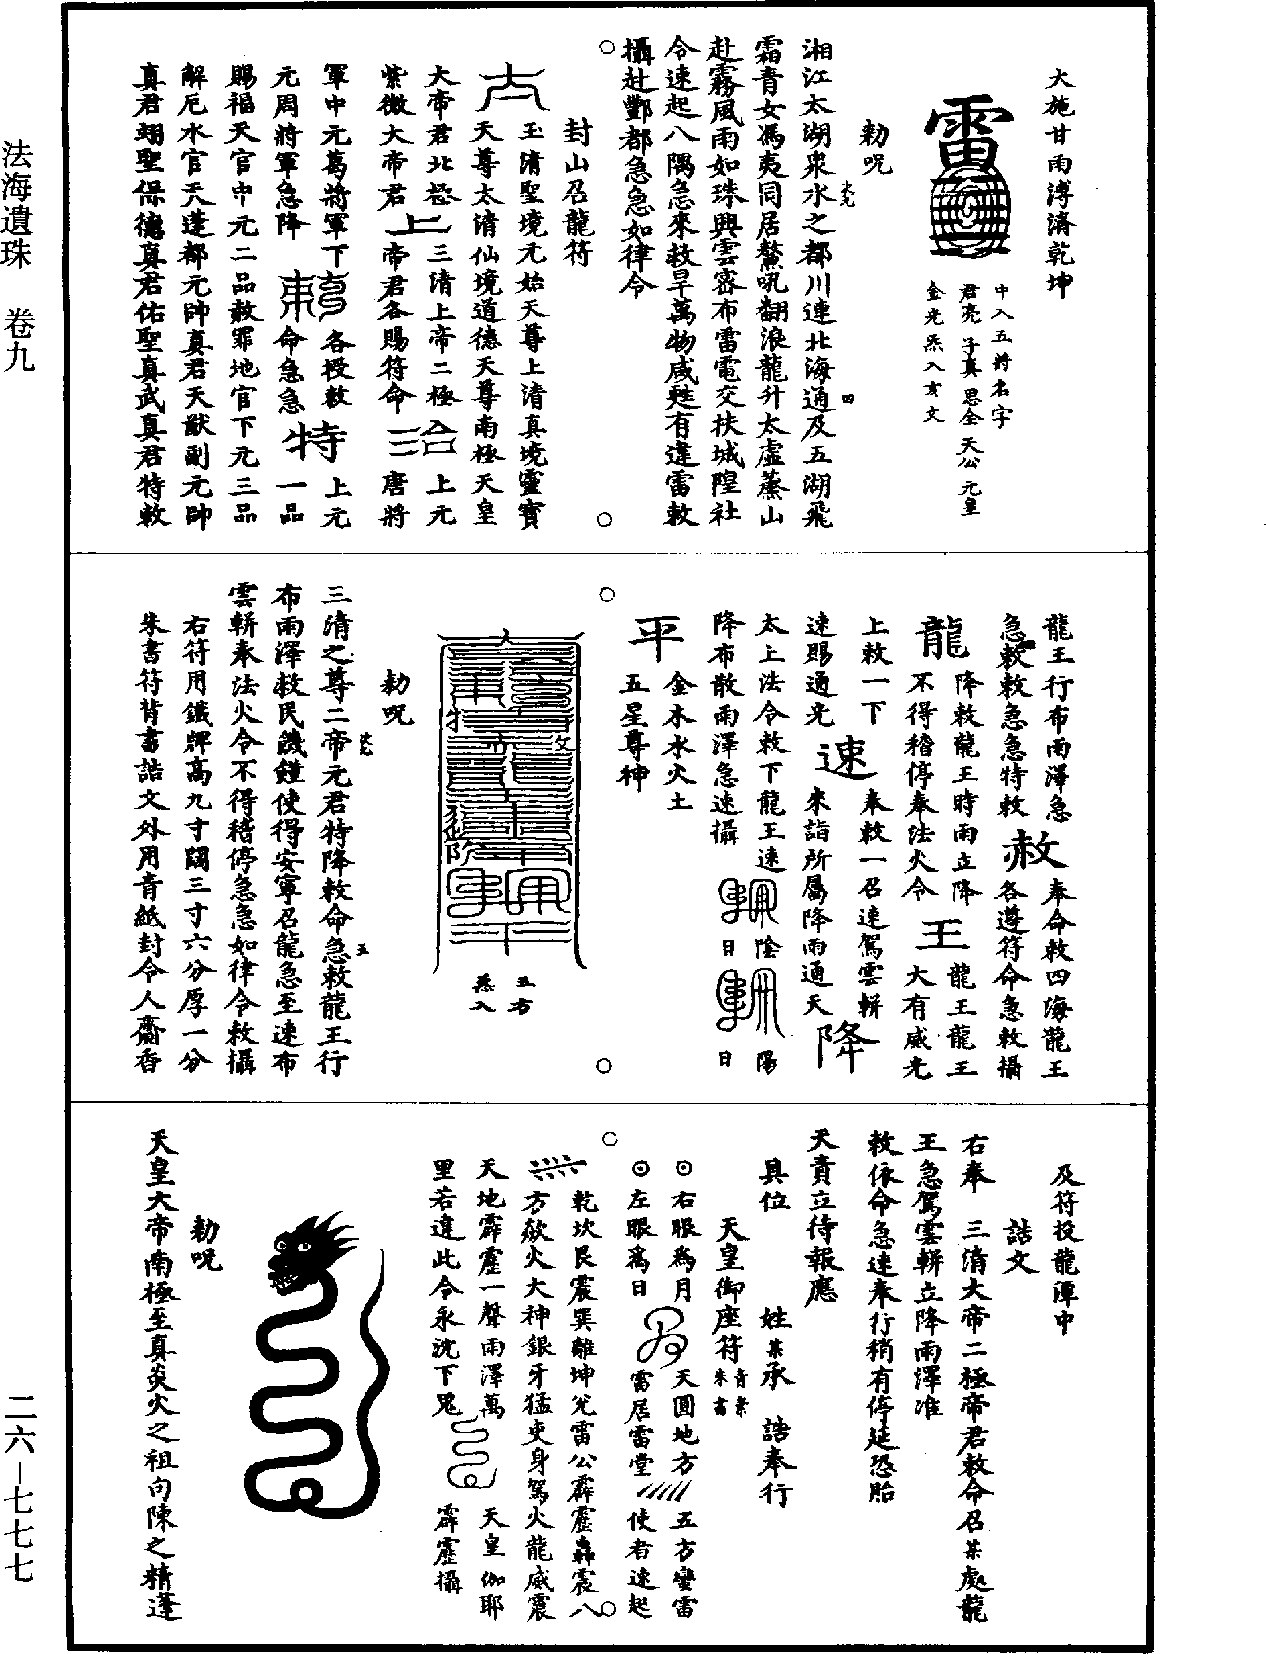 大施甘雨溥濟乾坤
雷
中入五將名字
君亮 子真 思全 天公 元皇
金光炁入亥文
勅呪
湘江太湖衆水之都川連北海通及五湖飛
霜青女馮夷同居鰲吼翻浪龍升太虛藁山
赴霧風雨如珠興雲密布雷電交扶城隍社
令速起八隅急來救旱萬物咸甦有違雷敕
攝赴酆都急急如律令
封山召龍符
玉清聖境元始天尊上清真境靈寶
天尊太清仙境道德天尊南極天皇
大帝君北極
紫微大帝君
上
三清上帝二極
帝君各賜符命
三台
上元
唐將
軍中元葛將軍下
元周將軍急降
各授敕
命急急
特
上元
一品
賜福天官中元二品赦罪地官下元三品
解厄水官天蓬都元帥真君天猷副元帥
真君翊聖保德真君佑聖真武真君特敕
龍王行布雨澤急
急敕敕急急特敕
赦
奉命敕四海龍王
各遵符命急敕攝
龍
降敕龍王時雨立降
不得稽停奉法火令
王
龍王龍王
大有威光
上敕一下
速賜通光
速
奉敕一召速駕雲輧
來詣所屬降雨通天
降
太上法令敕下龍王速
降布散雨澤急速攝
陰
日
陽
日
平
金木水火土
五星尊神
五右
炁入
勅呪
三清之尊二帝元君特降敕命急敕龍王行
布雨澤救民饑饉使得安寧召龍急至速布
雲輧奉法火令不得稽停急急如律令敕攝
右符用鐵牌高九寸闊三寸六分厚一分
朱書符背書誥文外用青紙封令人齋香
及符投龍潭中
誥文
右奉 三清大帝二極帝君敕命召某處龍
王急駕雲輧立降雨澤准
敕依命急速奉行稍有停延恐貽
天責立待報應
具位 姓某承 誥奉行
天皇御座符青紫朱書
右眼為月
左眼為日
天圓地方
雷居雷堂
五方蠻雷
使者速起
乾坎艮震巽離坤兌雷公霹靂轟震八
方欻火大神銀牙猛吏身駕火龍威震
天地霹靂一聲雨澤萬
里若違此令永沈下鬼
天皇伽耶
霹靂攝
勅呪
天皇大帝南極至真炎火之祖向陳之精蓬
法海遺珠 卷九
二六－七七七